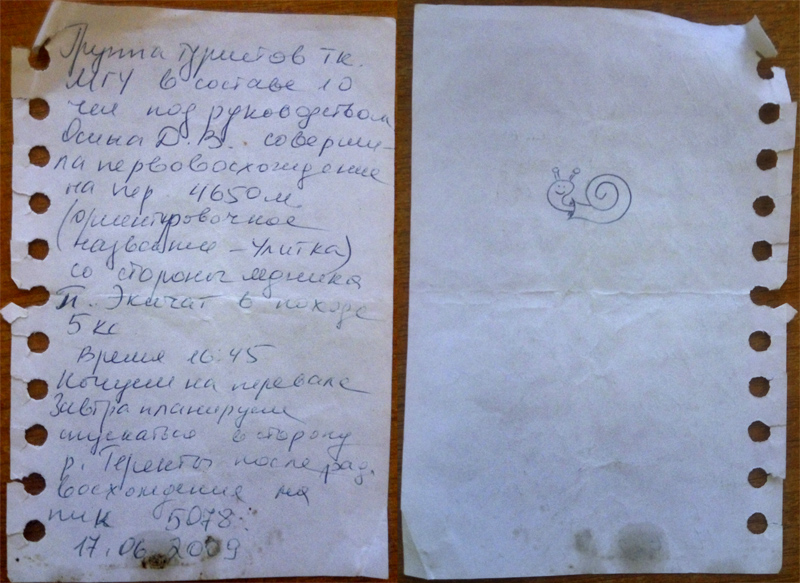 Группа туристов т.к.
МГУ в составе 10
чел под руководством
Осина Д.В. соверши-
ла первовосхождение
на пер 4650м
(ориентировочное
название - Улитка)
со стороны ледника
П. Экичат в походе
5 кс.
Время 16:45
Ночуем на перевале
Завтра планируем
спускаться в сторону
р. Теректы после рад.
восхождения на
пик 5078.
17.06.2009